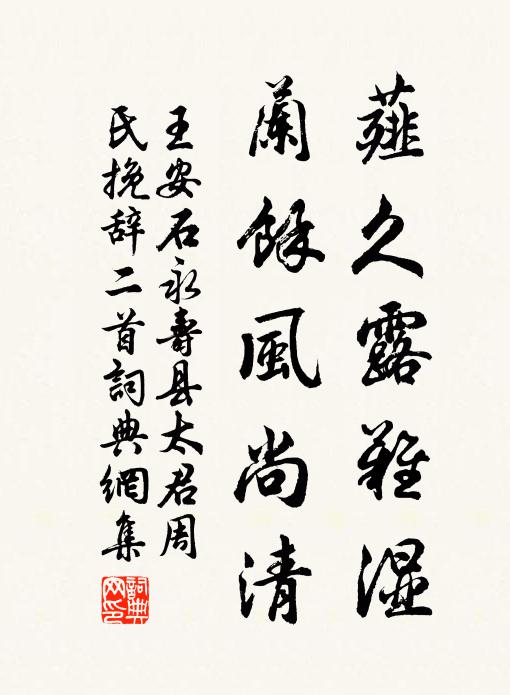 薤久露難湿
蘭餘風尚清
王安石永壽县太君周
氏挽辞二首詞典網集
詞典
网印